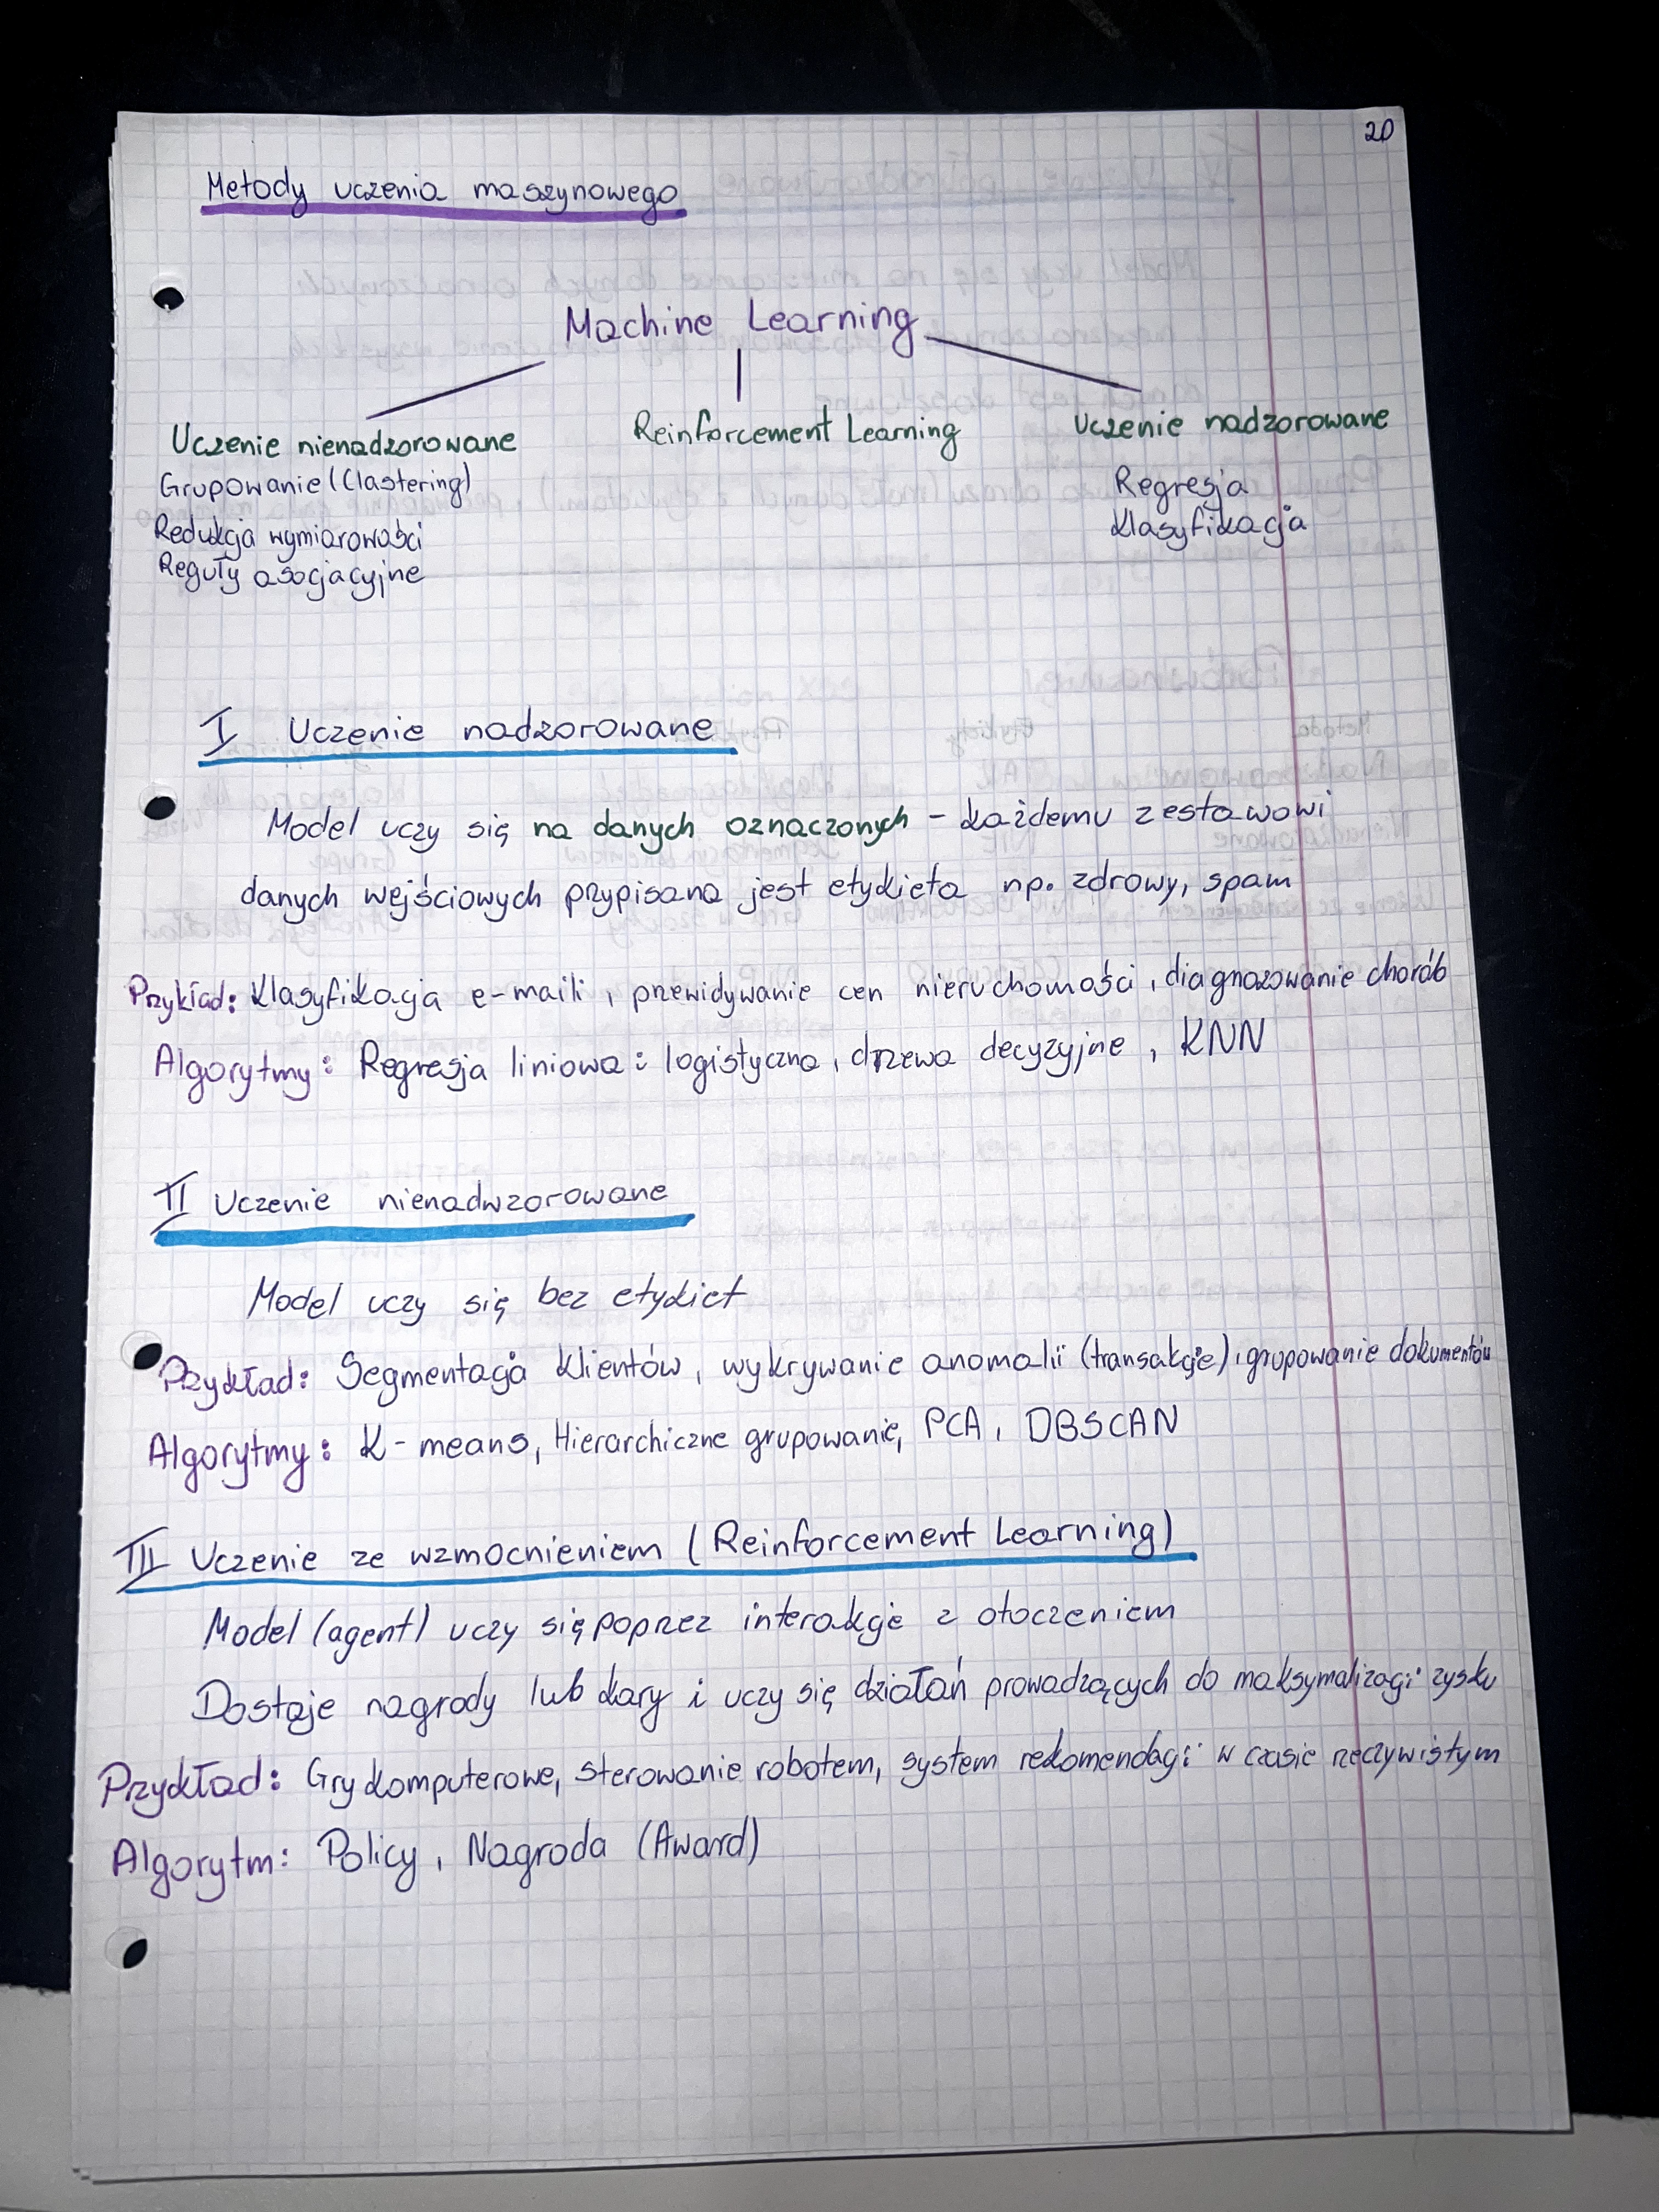 20
Metody uczenia maszynowego
Machine Learning
Uczenie nienadzorowane
Grupowanie (Clastering)
Redukcja wymiarowości
Reguły asocjacyjne
Reinforcement Learning
Uczenie nadzorowane
Regresja
Klasyfikacja
I Uczenie nadzorowane
Model uczy się na danych oznaczonych - każdemu zestawowi
danych wejściowych przypisana jest etykieta np. zdrowy, spam
Przykład: Klasyfikacja e-maili, przewidywanie cen nieruchomości, diagnozowanie chorób
Algorytmy: Regresja liniowa: logistyczna, drzewa decyzyjne, KNN
II Uczenie nienadwzorowane
Model uczy się bez etykiet
Przykład: Segmentacja klientów, wykrywanie anomalii (transakcje), grupowanie dokumentów
Algorytmy: K-means, Hierarchiczne grupowanie, PCA, DBSCAN
III Uczenie ze wzmocnieniem (Reinforcement Learning)
Model (agent) uczy się poprzez interakcje z otoczeniem
Dostaje nagrody lub kary i uczy się działań prowadzących do maksymalizacji zysku
Przykład: Gry komputerowe, sterowanie robotem, system rekomendacji w czasie rzeczywistym
Algorytm: Policy, Nagroda (Award)